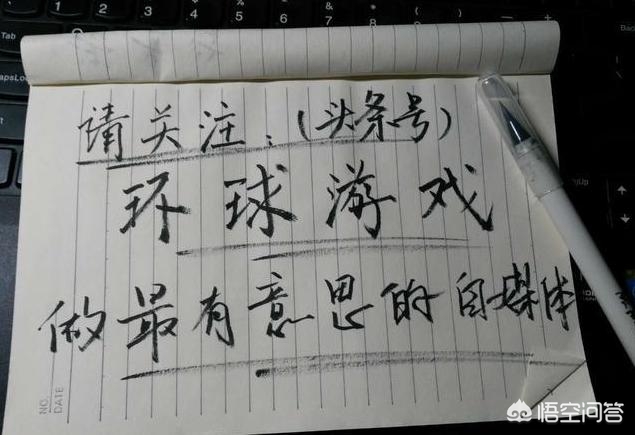 请关注：（头条号）
环球游戏
做最有意思的自媒体
NO.
DATE
Tab
悟空问答